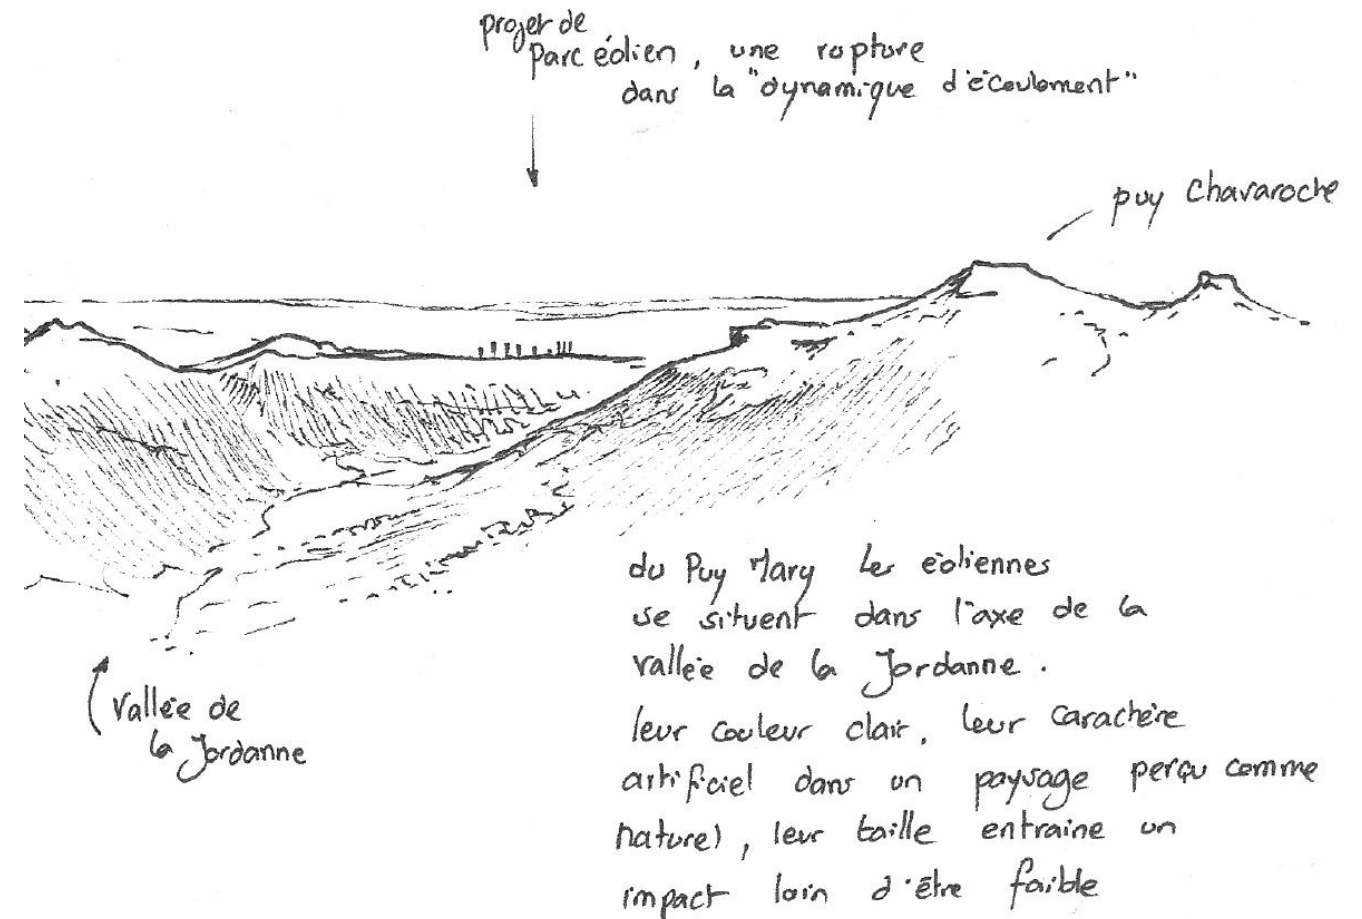 projet de
parc éolien, une rupture
dans la "dynamique d'écoulement"
puy Chavaroche
du Puy Mary les éoliennes
se situent dans l'axe de la
vallée de la Jordanne.
Vallée de
la Jordanne
leur couleur clair, leur caractère
artificiel dans un paysage perçu comme
naturel, leur taille entraine un
impact loin d'être faible